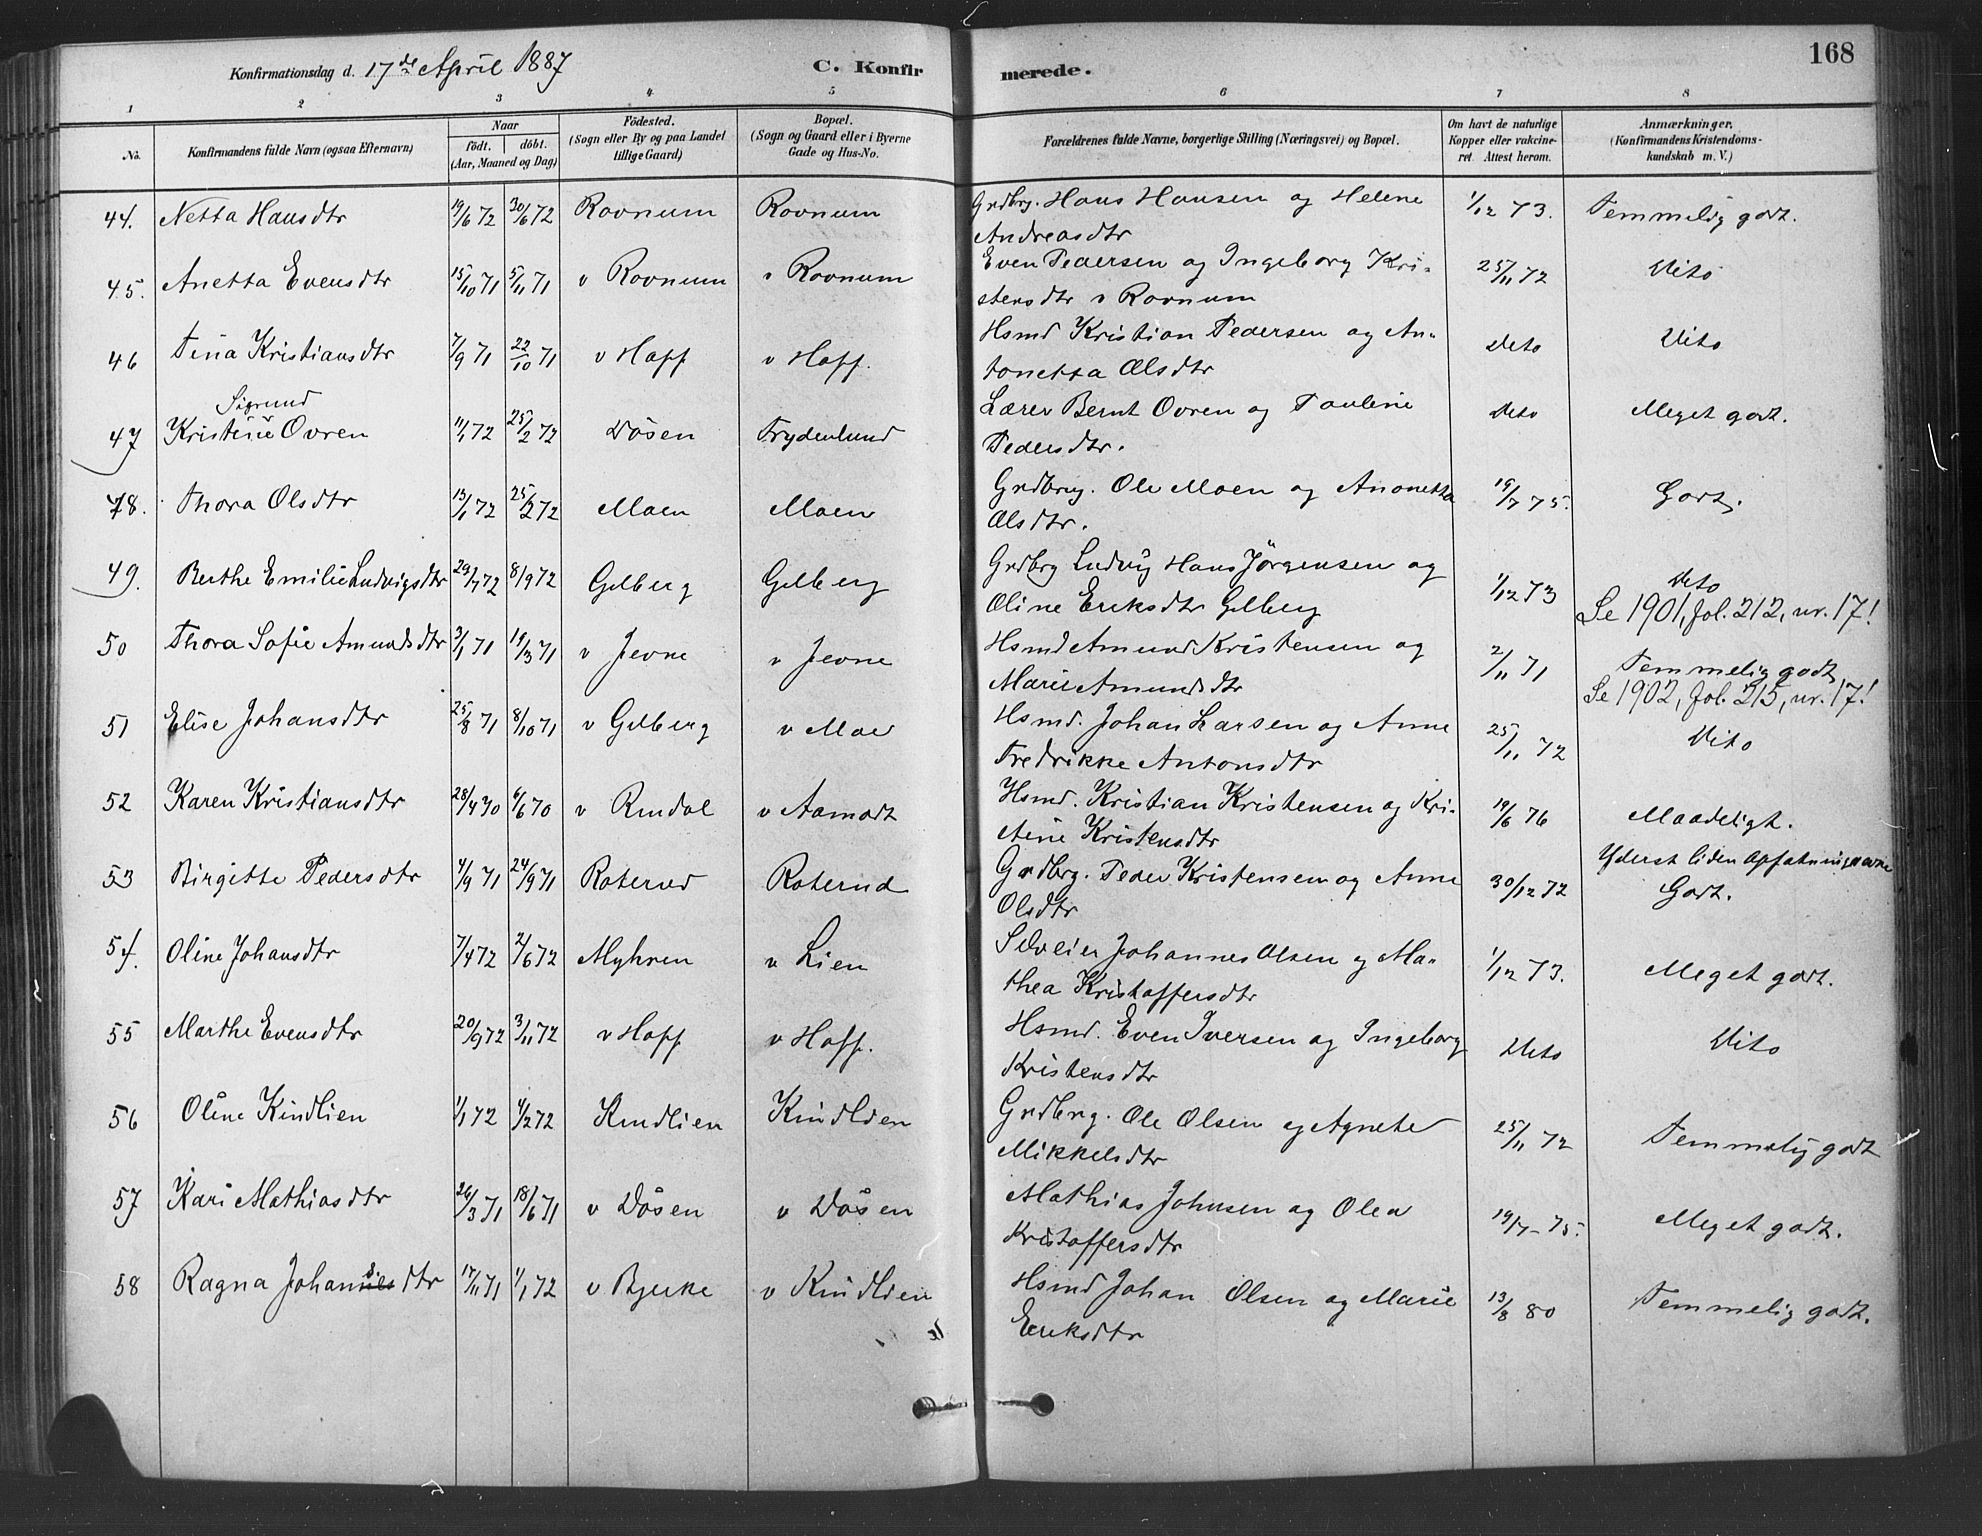 Konfirmationsdag d. 17de April 1887 C. Konfirmerede. 168
1 2 3 4 5 6 7 8
No. Konfirmandens fulde Navn (ogsaa Efternavn) Naar födt. döbt. (Aar, Maaned og Dag) Födested. (Sogn eller By og paa Landet tillige Gaard) Bopæl. (Sogn og Gaard eller i Byerne Gade og Hus-No. Forældrenes fulde Navne, borgerlige Stilling (Næringsvei) og Bopæl. Om havt de naturlige Kopper eller vakcineret. Attest herom. Anmærkninger. (Konfirmandens Kristendomskundskab m. V.)
44. Netta Hansdtr 19/6 72 30/6 72 Rovnum Rovnum Grdbrg. Hans Hansen og Helene Andreasdtr 1/12 73. Temmelig godt.
45. Anetta Evensdtr 15/10 71 5/11 71 v Rovnum v Rovnum Even Pedersen og Ingeborg Kristensdtr v Rovnum 25/11 72 Dito
46 Tina Kristiansdtr 7/9 71 22/10 71 v Hoff v Hoff. Hsmd Kristian Pedersen og Antonetta Olsdtr Deto Dito
47 Sigrund Kristine Ovren 11/1 72 25/2 72 Dösen Frydenlund Lærer Bernt Ovren og Pauline Pedersdtr. Deto Meget godt.
48. Thora Olsdtr 13/1 72 25/2 72 Moen Moen Grdbrg. Ole Moen og Anonetta Olsdtr. 19/7 75. Godt.
49. Berthe Emilie Ludvigsdtr 29/7 72 8/9 72 Gilberg Gilberg Grdbrg Ludvig Hans Jörgensen og Oline Eriksdtr Gilberg 1/12 73 Deto
Se 1901, fol. 212, nr. 17!
50 Thora Sofie Amundsdtr 3/1 71 19/3 71 v Jevne v Jevne Hsmd Amund Kristensen og Marie Amundsdtr 2/11 71 Temmelig godt
Se 1902, fol. 215, nr. 17!
51 Elise Johansdtr 25/8 71 8/10 71 v Gilberg v Moe Hsmd. Johan Larsen og Anne Fredrikke Antonsdtr 25/11 72 Dito
52 Karen Kristiansdtr 28/4 30 6/6 70 v Rindal v Aamodt Hsmd. Kristian Kristensen og Kristine Kristensdtr 19/6 76 Maadeligt.
Yderst liden Opfatningsevne
53 Birgitte Pedersdtr 4/9 71 24/9 71 Roterud Roterud Grdbrg. Peder Kristensen og Anne Olsdtr 30/12 72 Godt.
54. Oline Johansdtr 7/4 72 2/6 72 Myhren v Lien Selveier Johannes Olsen og Mathea Kristoffersdtr 1/12 73. Meget godt.
55 Marthe Evensdtr 20/9 72 3/11 72 v Hoff v Hoff. Hsmd. Even Iversen og Ingeborg Kristensdtr Deto Dito
56 Oline Kindlien 1/1 72 4/2 72 Kindlien Kindlien Grdbrg. Ole Olsen og Agnete Mikkelsdtr 25/11 72 Temmelig godt
57 Kari Mathiasdtr 26/3 71 18/6 71 v Dösen v Dösen Mathias Johnsen og Olea Kristoffersdtr 19/7 - 75. Meget godt.
58 Ragna Johansdtr 17/11 71 1/1 72 v Bjerke v Kindlien Hsmd Johan Olsen og Marie Eriksdtr 13/8 80 Temmelig godt.